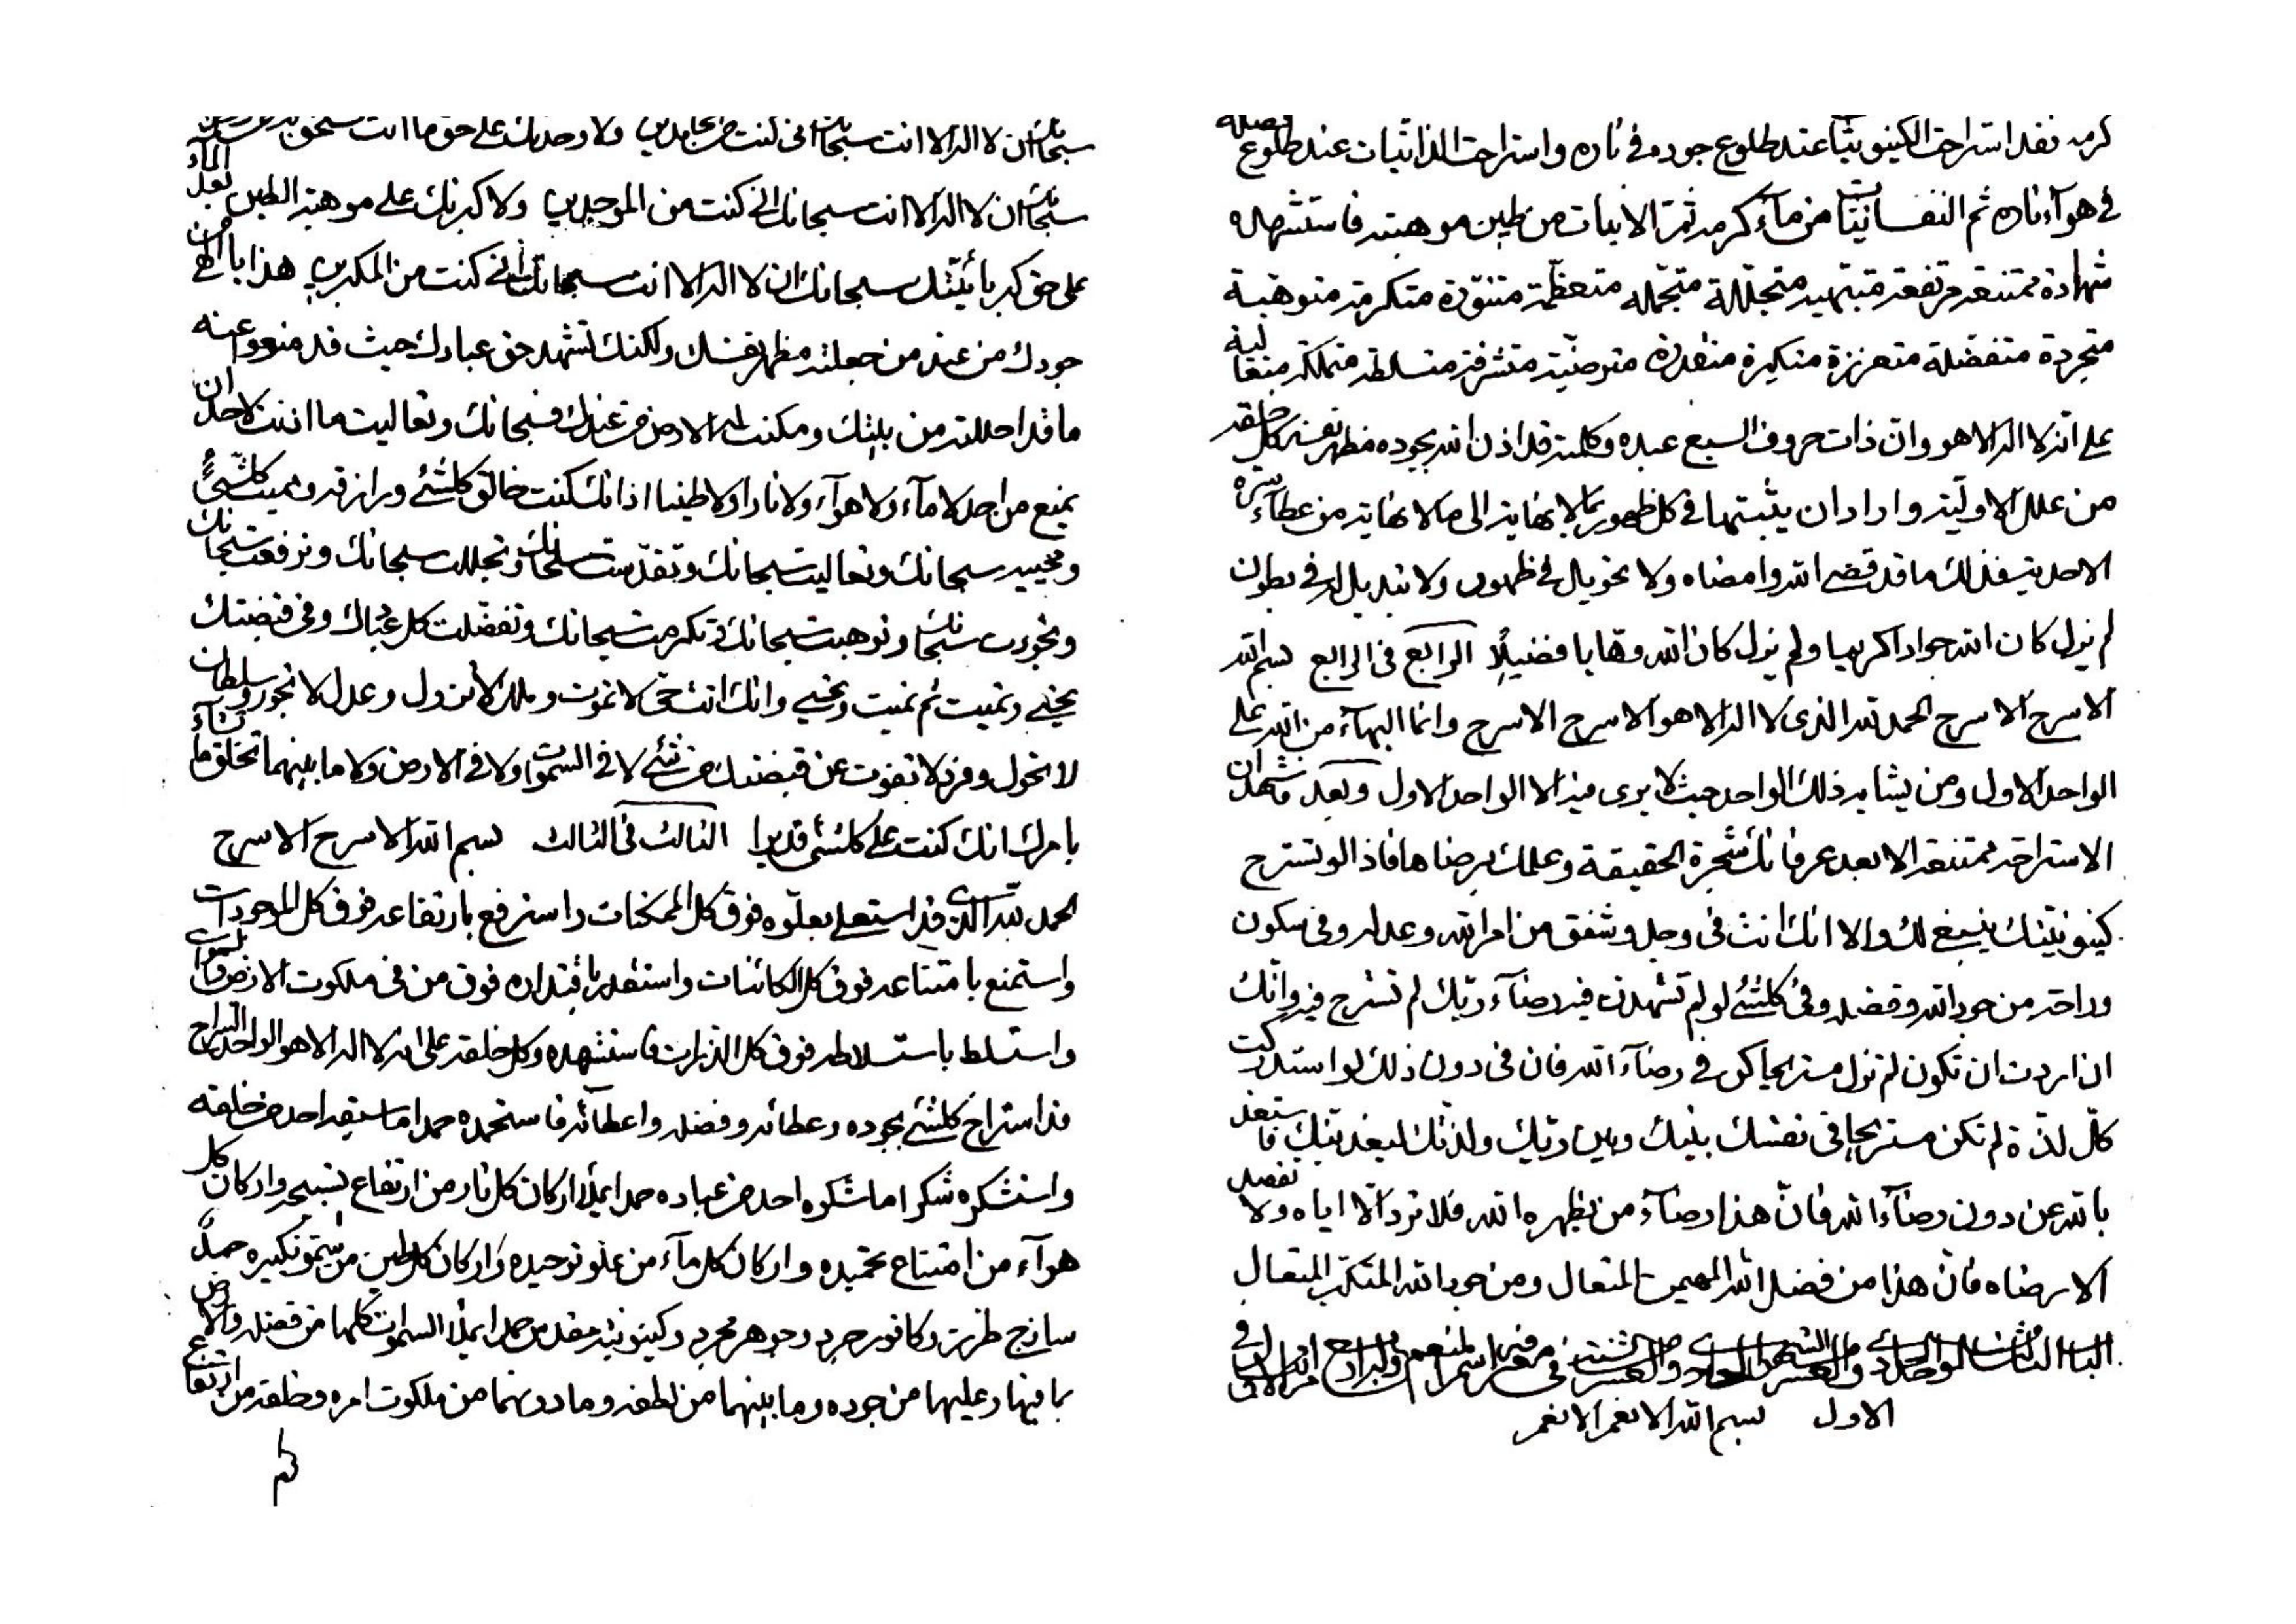 سبحانك ان لا اله الا انت سبحانك انى كنت من الحامدين ولا وحدنك على حق ما انت
سبحانك ان لا اله الا انت سبحانك انى كنت من الموحدين ولاكبرنك على موهبة الطين بعد المآء
على حق كبريائيتك سبحانك ان لا اله الا انت سبحانك انى كنت من المكبرين هذا يا الهى من
جودك من عند من جعلته مظهر نفسك ولكنك تشهد حق عبادك حيث قد منعوا عنه
ما قد احللته من بينك ومكنت له الارض من عندك فسبحانك وتعاليت ما اذنت لاحد ان
يمنع من احد لا مآء ولا هوآء ولا نارا ولا طينا اذ انك كنت خالق كلشئ ورازقه ومميت كلشئ
ومحييه سبحانك وتعاليت سبحانك وتقدست سبحانك وتجللت سبحانك وترفعت سبحانك
وتجودت سبحانك وتوهبت سبحانك وتكرمت سبحانك وتفضلت كل عبادك وفى قبضتك
تحيى وتميت ثم تميت وتحيى وانك انت حى لا تموت وملك لا تزول وعدل لا تجور وسلطان
لا تحول وفرد لا تفوت عن قبضتك من شئ لا فى السموات ولا فى الارض ولا ما بينهما تخلق ما تشآء
بامرك انك كنت على كلشئ قديرا الثالث فى الثالث بسم الله الاسرح الاسرح
الحمد لله الذى قد استعلى بعلوه فوق كل الممكنات واسترفع بارتفاعه فوق كل الموجودات
واستمنع بامتناعه فوق كل الكائنات واستقدر باقتداره فوق من فى ملكوت الارض والسموات
واستسلط باستسلاطه فوق كل الذرات فاستشهده وكل خلقه على انه لا اله الا هو الواحد السراح
قد استراح كلشئ بجوده وعطائه وفضله واعطائه فاستحمده حمدا ما سبقه احد من خلقه
واستشكره شكرا ما شكره احد من عباده حمدا يملأ اركان كل نار من ارتفاع تسبيحه واركان كل
هوآء من امتناع تحميده واركان كل مآء من علو توحيده واركان كل طين من سمو تكبيره حمدا
ساذج طرزية وكافور جردية وجوهر مجردية وكينونية مقدس حمدا يملأ السموات كلها من فضله والارض
بما فيها وعليها من جوده وما بينهما من لطفه وما دونهما من ملكوت امره وخلقه من ارتفاع
كرمه
كرمه فقد استراحت الكينونيات عند طلوع جوده فى ناره واستراحت الذاتيات عند طلوع فضله
فى هوآء ناره ثم النفسانيات من مآء كرمه ثم الانيات من طين موهبته فاستشهده
شهادة ممتنعة مرتفعة مبتهية متجللة متجملة متعظمة متنورة متكرمة متوهبة
متجردة متفضلة متعززة متكبرة متقدرة مترضية متشرفة متسلطة متملكة متعالية
على انه لا اله الا هو وان ذات حروف السبع عبده وكلمته قد اذن الله بجوده مظهر نفسه كل خلقه
من علل الاولية واراد ان يثبتها فى كل ظهور بما لا نهاية الى ما لا نهاية من عطآء سره
الاحدية فذلك ما قد قضى الله وامضاه ولا تحويل له فى ظهور ولا تبديل له فى بطون
لم يزل كان الله جوادا كريما ولم يزل كان الله وهابا فضيلا الرابع فى الرابع بسم الله
الاسرح الاسرح الحمد لله الذى لا اله الا هو الاسرح الاسرح وانما البهآء من الله على
الواحد الاول ومن يشابه ذلك الواحد حيث لا يرى فيه الا الواحد الاول وبعد فاشهد ان
الاستراحة ممتنعة الا بعد عرفانك شجرة الحقيقة وعملك برضاها فاذا لو تستريح
كينونيتك ينبغى لك والا انك انت فى وجل وشفق من امر الله وعدله وفى سكون
وراحة من جود الله وفضله وفى كلشئ لو لم تشهدن فيه رضآء ربك لم تسترح فيه وانك
ان اردت ان تكون لم تزل مستريحا كن فى رضآء الله فان فى دون ذلك لو استدركت
كل لذة لم تكن مستريحا فى نفسك بينك وبين ربك ولذتك ليعذبنك فاستعذ
بالله عن دون رضآء الله فان هذا رضآء من يظهره الله فلا ترد الا اياه ولا تفصل
الا رضاه فان هذا من فضل الله المهيمن المتعال ومن جود الله المتكبر المتعال
الباب الثالث الواحد والعشر فى معرفة اسم المنعم وله اربع مراتب الاول فى
الاول بسم الله الانعم الانعم